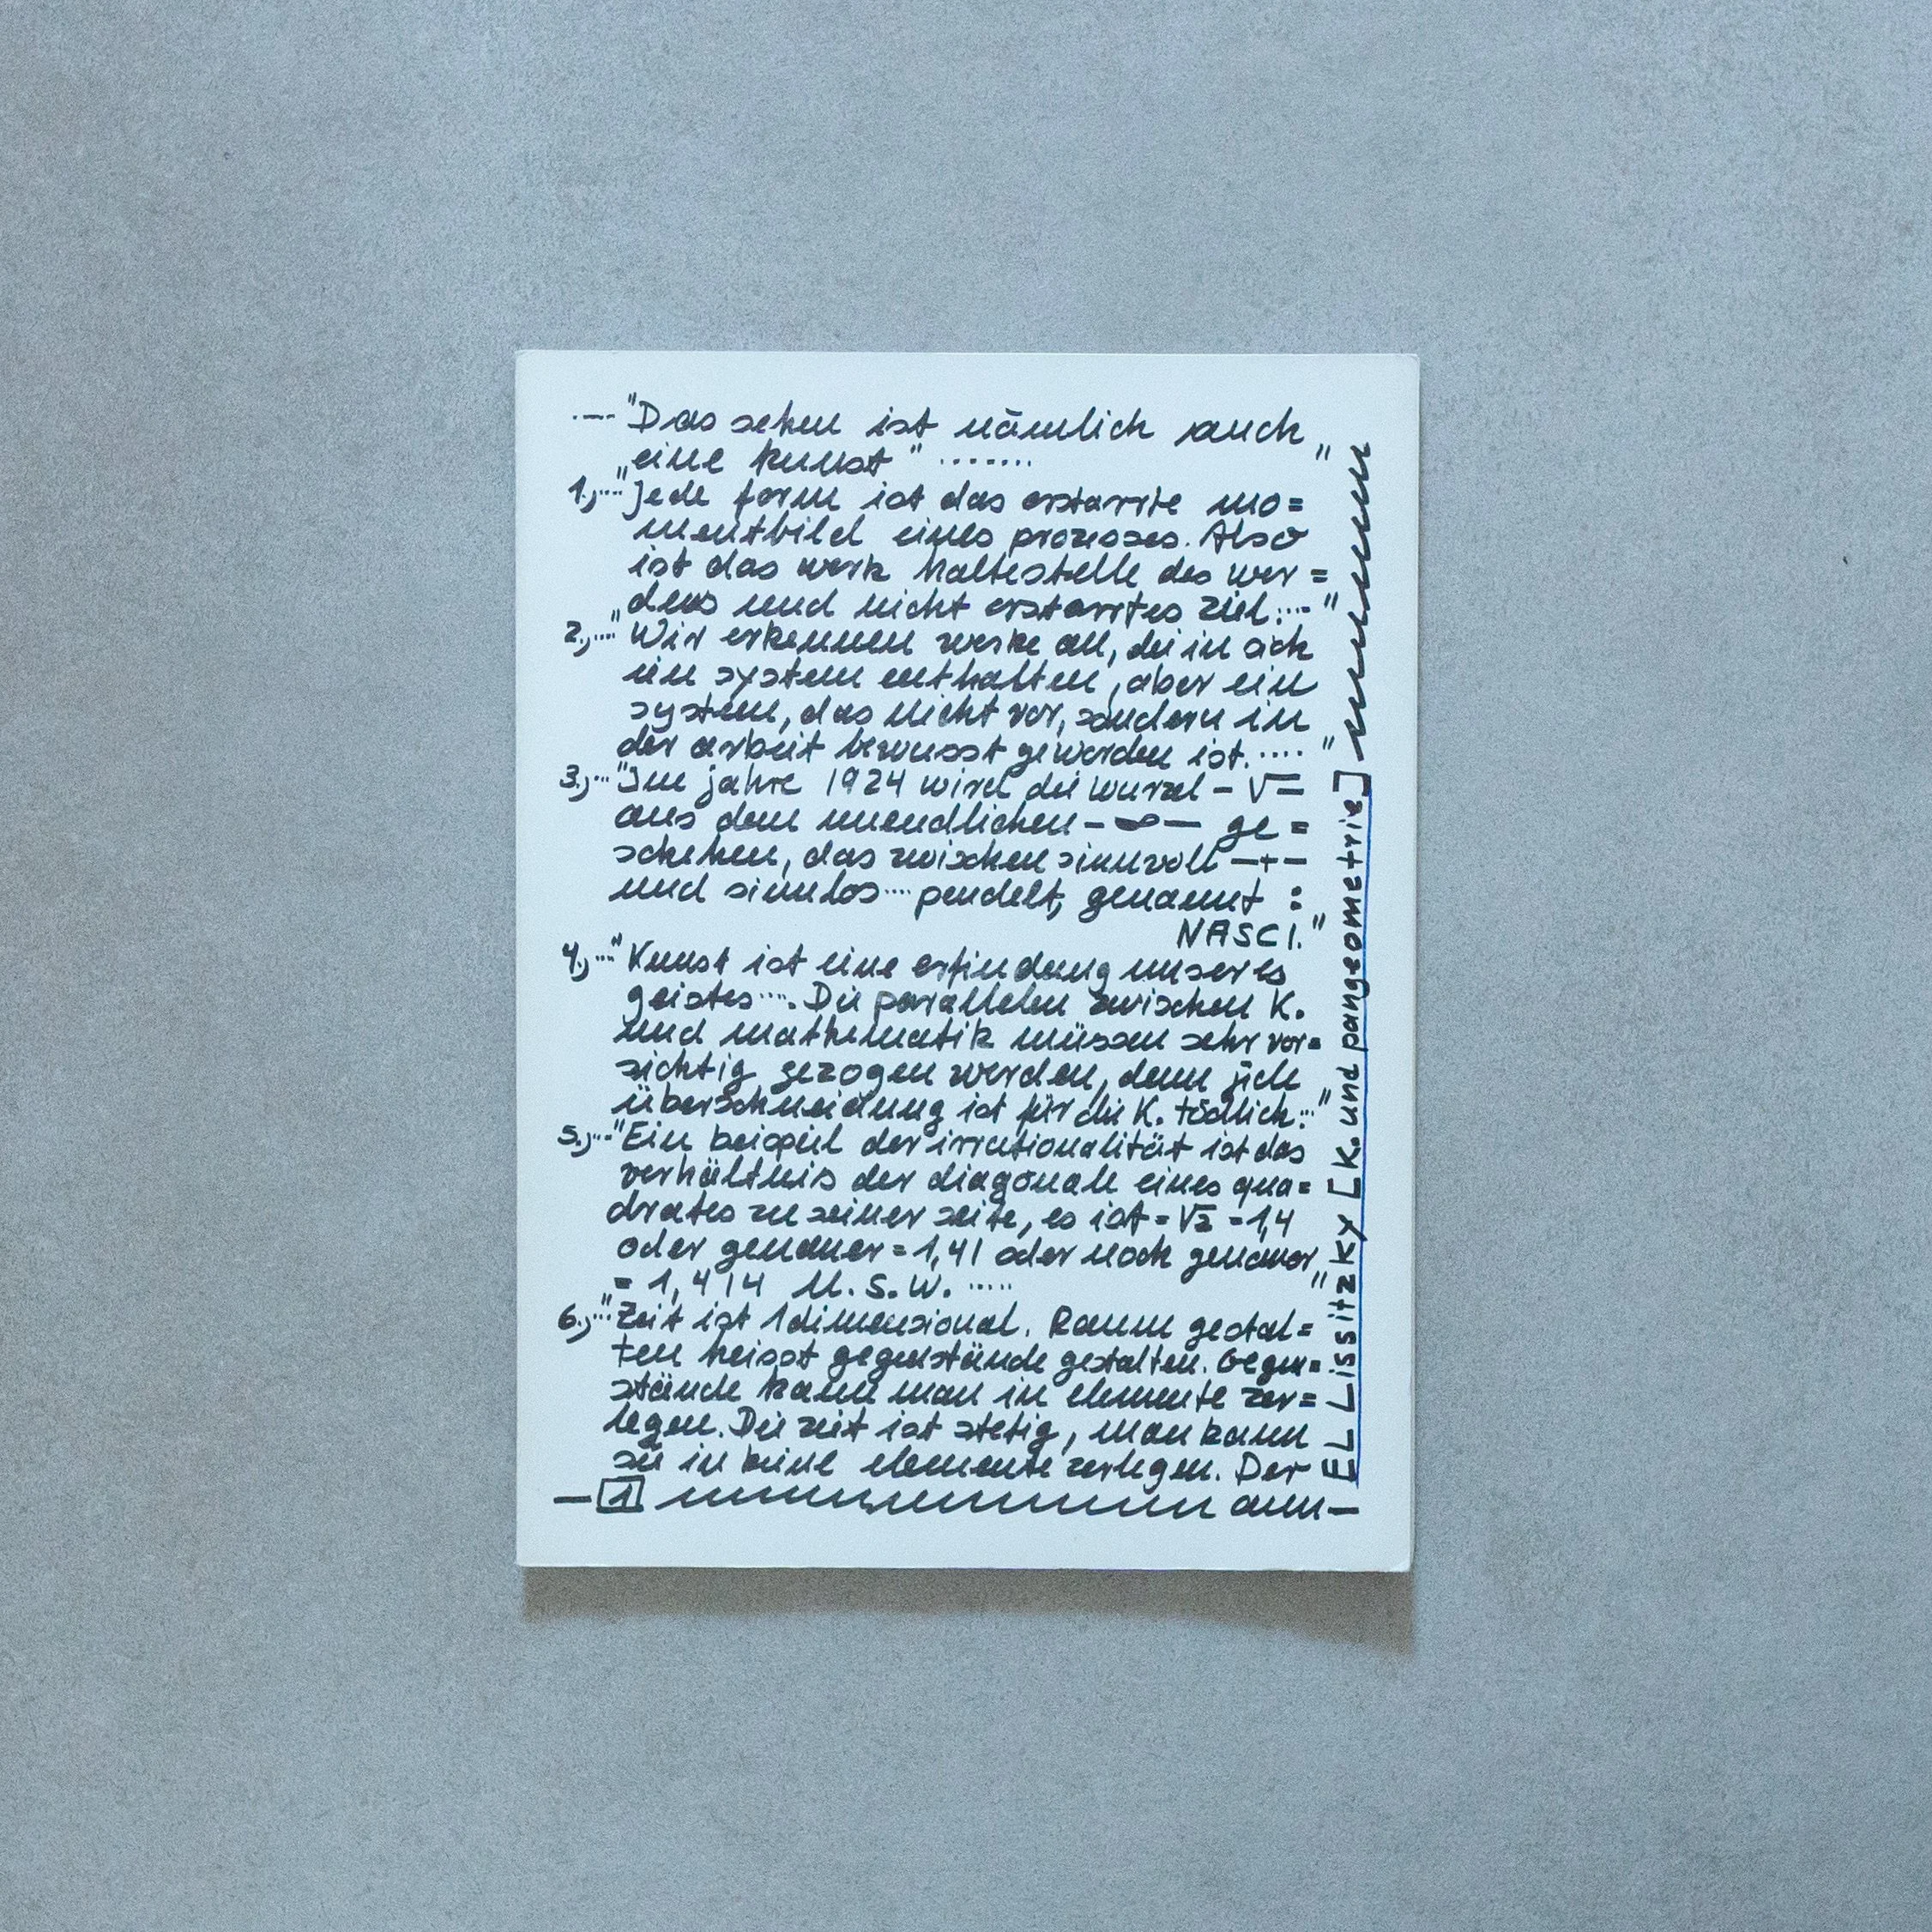 ·—"Das sehen ist nämlich auch „
„eine kunst" .......
1.,..."Jede form ist das erstarrte mo=
mentbild eines prozesses. Also
ist das werk haltestelle des wer=
„dens und nicht erstarrtes ziel...."
2.,...."Wir erkennen werke an, die in sich
ein system enthalten, aber ein
system, das nicht vor, sondern in
der arbeit bewusst geworden ist....."
3.,..."Im jahre 1924 wird die wurzel - √=
aus dem unendlichen - ∞ — ge=
schehen, das zwischen sinnvoll —+—
und sinnlos .... pendelt, genannt :
NASCI."
4.,..."Kunst ist eine erfindung unseres
geistes..... Die parallelen zwischen K.
und mathematik müssen sehr vor=
sichtig gezogen werden, denn jede
überschneidung ist für die K. tödlich..."
5.,..."Ein beispiel der irrationalität ist das
verhältnis der diagonale eines qua=
drates zu seiner seite, es ist = √2 = 1,4
oder genauer = 1,41 oder noch genauer „
= 1,414 U.S.W. .....
6.,..."Zeit ist 1dimensional. Raum gestal=
ten heisst gegenstände gestalten. Gegen=
stände kann man in elemente zer=
legen. Die zeit ist stetig, man kann
sie in keine elemente zerlegen. Der
— 1 aun —
EL Lissitzky [K. und pangeometrie]